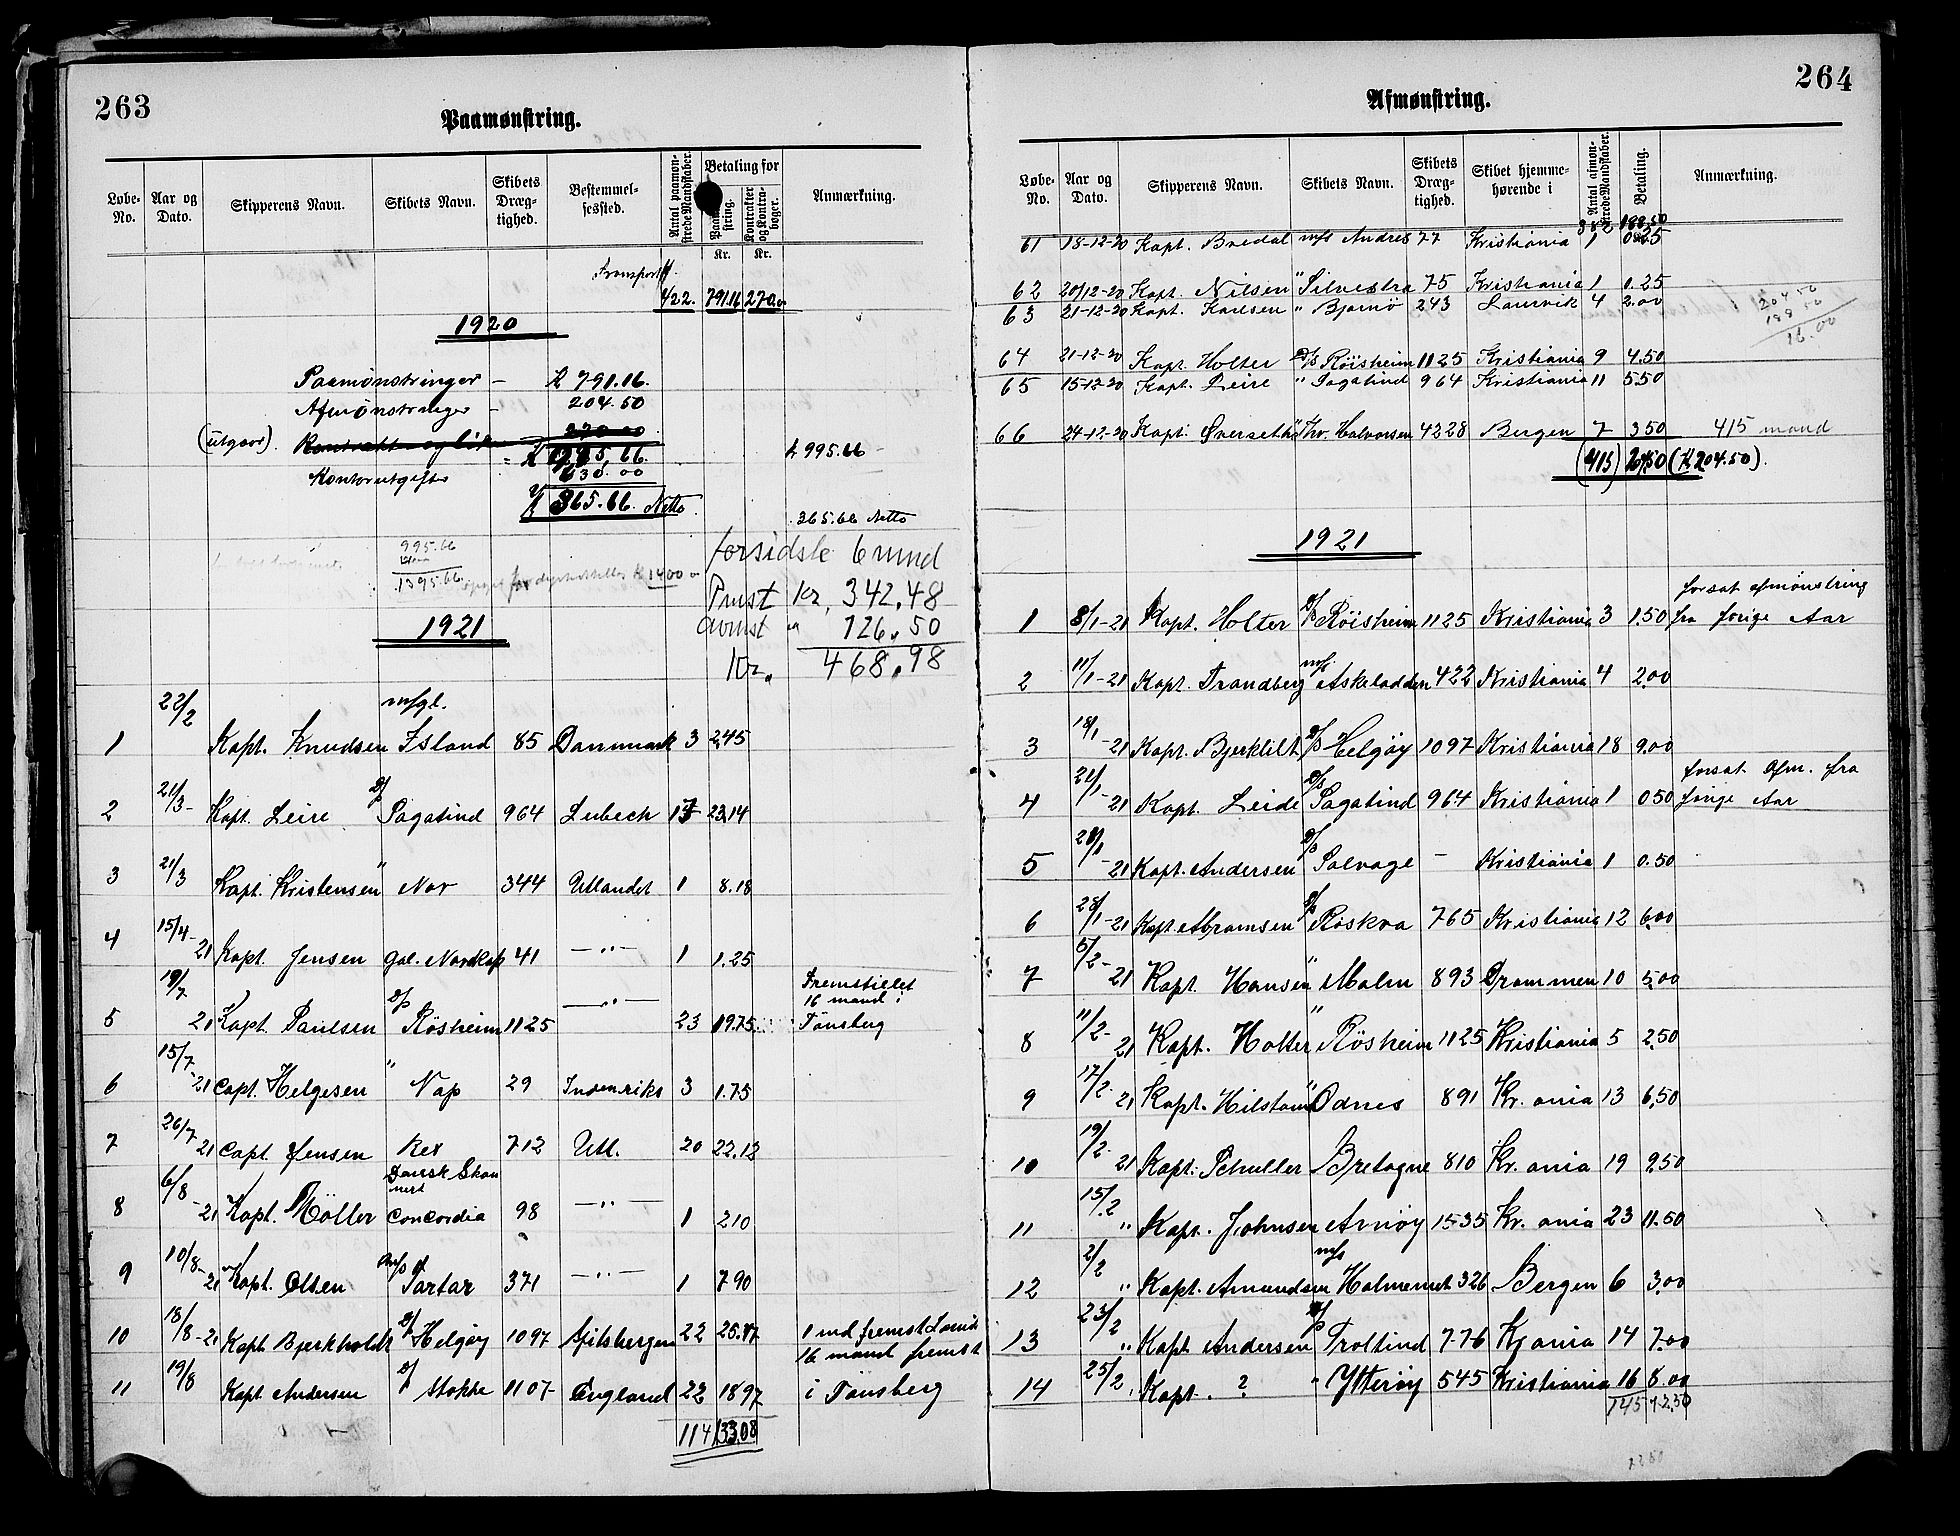 263
Paamønstring.
Løbe-No. Aar og Dato. Skipperens Navn. Skibets Navn. Skibets Drægtighed. Bestemmelsessted. Antal paamønstrede Mandskaber. Betaling for Anmærkning.
Kontrakter og Kontrabøger.
Kr. Kr.
Transport
422. 791.16 270.00
1920
Paamønstringer - K 791.16.
Afmønstringer - 204.50
(utgaar). 270.00
995.66. K 995.66 -
Kontorutgifter 630.00
K 365.66. Netto
365.66 Netto
995.66
1395.66
1400
forsidste 6 mnd
Pmst Kr. 342.48
Avmst " 126.50
Kr. 468.98
1921
1 22/2 Kapt. Knudsen m/gl. Island 85 Danmark 3 2.45
2 21/3- Kapt. Leire S/S Sagatind 964 Lubech 17 23.14
3 21/3 Kapt. Kristensen " Nor 344 Utlandet 1 8.18
4 15/4-21 Kapt. Jensen Gal. Nordkap 41 -"- 1 1.25
5 19/7 21 Kapt. Paulsen S/S Rösheim 1125 -"- 23 19.75 Fremstillet 16 mand i Tønsberg
6 15/7-21 Capt. Helgesen " Nap 29 Indenriks 3 1.75
7 26/7 21 Capt Jensen Rex 712 Utl. 20 22.12
8 6/8-21 Kapt. Möller Dansk Skonnert Concordia 98 -"- 1 210
9 10/8-21 Kapt. Olsen M/S Tartar 371 -"- 1 7.90
10 18/8-21 Kapt Bjerkholdt S/S Helgøy 1097 Spitsbergen 22 25.47 1 md fremst Larvik
11 19/8 Kapt Andersen S/S Stokke 1107 England 22 18.97 16 mand fremst i Tønsberg
114 133.08
264
Afmønstring.
Løbe-No. Aar og Dato. Skipperens Navn. Skibets Navn. Skibets Drægtighed. Skibet hjemmehørende i Antal afmønstrede Mandskaber. Betaling. Anmærkning.
188.50
61 18-12-20 Kapt. Bredal m/s Andres 77 Kristiania 1 0.25
62 20/12-20 Kapt. Nilsen " Silvestra 75 Kristiania 1 1.25
63 21-12-20 Kapt. Karlsen " Bjarnø 243 Laurvik 4 2.00
204 50
188 50
16.00
64 21-12-20 Kapt. Holter S/S Röisheim 1125 Kristiania 9 4.50
65 15-12-20 Kapt. Leire " Sagatind 964 Kristiania 11 5.50
66 24-12-20 Kapt. Øverseth " Thr. Halvorsen 4228 Bergen 7 3.50 415 mand
(415) (K 204.50).
1921
1 8/1-21 Kapt. Holter S/S Röisheim 1125 Kristiania 3 1.50 forsat afmønstring fra forige Aar
2 11/1-21 Kapt. Trandberg m/s Askeladden 422 Kristiania 4 2.00
3 18/1-21 Kapt. Bjerklilt S/S Helgøy 1097 Kristiania 18 9.00
4 21/1-21 Kapt. Leide S/S Sagatind 964 Kristiania 1 0.50 forsat Afm. fra forige Aar
5 28/1-21 Kapt. Andersen S/S Salvage - Kristiania 1 0.50
6 28/1-21 Kapt. Abramsen S/S Röskva 765 Kristiania 12 6.00
7 5/2-21 Kapt. Hansen " Malm 893 Drammen 10 5.00
8 11/2-21 Kapt. Holter " Rösheim 1125 Kristiania 5 2.50
9 17/2 21 Kapt. " Odnes 891 Kr. ania 13 6.50
10 19/2 21 Kapt. Schuller Bretagne 810 Kr. ania 19 9.50
11 15/2 " Kapt. Johnsen Arnøy 1535 Kr. ania 23 11.50
12 2/2 " Kapt. Amundsen m/s 326 Bergen 6 3.00
13 23/2 " Kapt Andersen S/S Troltind 776 Kr ania 14 7.00
14 25/2 Kapt. ? " Ytterøy 545 Kristiania 16 8.00
145 72.50
72 50